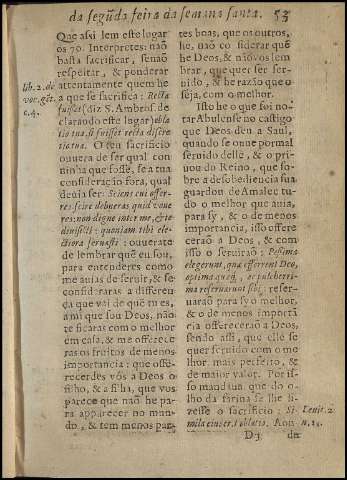 da segũda feira da semana santa. 53
Que assi lem este lugar
os 70. Interpretes: naõ
basta sacrificar, senaõ
respeitar, & ponderar
attentamente quem he
a que se sacrifica: Recta
fuisset (diz S. Ambros. de
clarando este lugar) obla
tio tua, si fuisset recta discre
tio tua. O teu sacrificio
ouuera de ser qual con
uinha que fosse, se a tua
consideraçaõ fora, qual
deuia ser: Sciens cui offer-
res: scire debueras, quid voue
res: non digne inter me, & te
diuisisti: quoniam tibi ele-
ctiora seruasti: ouuerate
de lembrar que eu sou,
para entenderes como
me auias de seruir, & se
considéraras a differen
ça que vai de que tu es,
a mi que sou Deos, não
te ficaras com o melhor
em casa, & me offerece
ras os fruitos de menos
importancia: que offe-
recerdes vòs a Deos o
filho, & a filha, que vos
parece que naõ he pa-
ra apparecer no mun-
do, & tem menos par-
lib. 2. de
voc. gẽt.
c. 4.
tes boas, que os outros,
he, naõ considerar quẽ
he Deos, & naõ vos lem
brar, que quer ser ser-
uido, & he razaõ que o
seja, com o melhor.
Isto he o que foi no-
tar Abulense no castigo
que Deos deu a Saul,
quando se ouue por mal
seruido delle, & o pri-
uou do Reino, que so-
bre a desobediencia sua
guardou de Amalec tu-
do o melhor que auia,
para sy, & o de menos
importancia, isso offere
ceraõ a Deos, & com
isso o seruiraõ: Pessima
elegerunt, quæ offerrent Deo,
optima quæq; et pulcherri-
ma reseruarunt sibi: reser-
uaraõ para sy o melhor,
& o de menos importã
cia offereceraõ a Deos,
sendo assi, que elle se
quer seruido com o me
lhor, mais perfeito, &
de maior valor. Por is-
so mandaua que do o-
lho da farina se lhe fi-
zesse o sacrificio: Si-
mila eius erit oblatio. Aon
Leuit. 2.
D 3 de